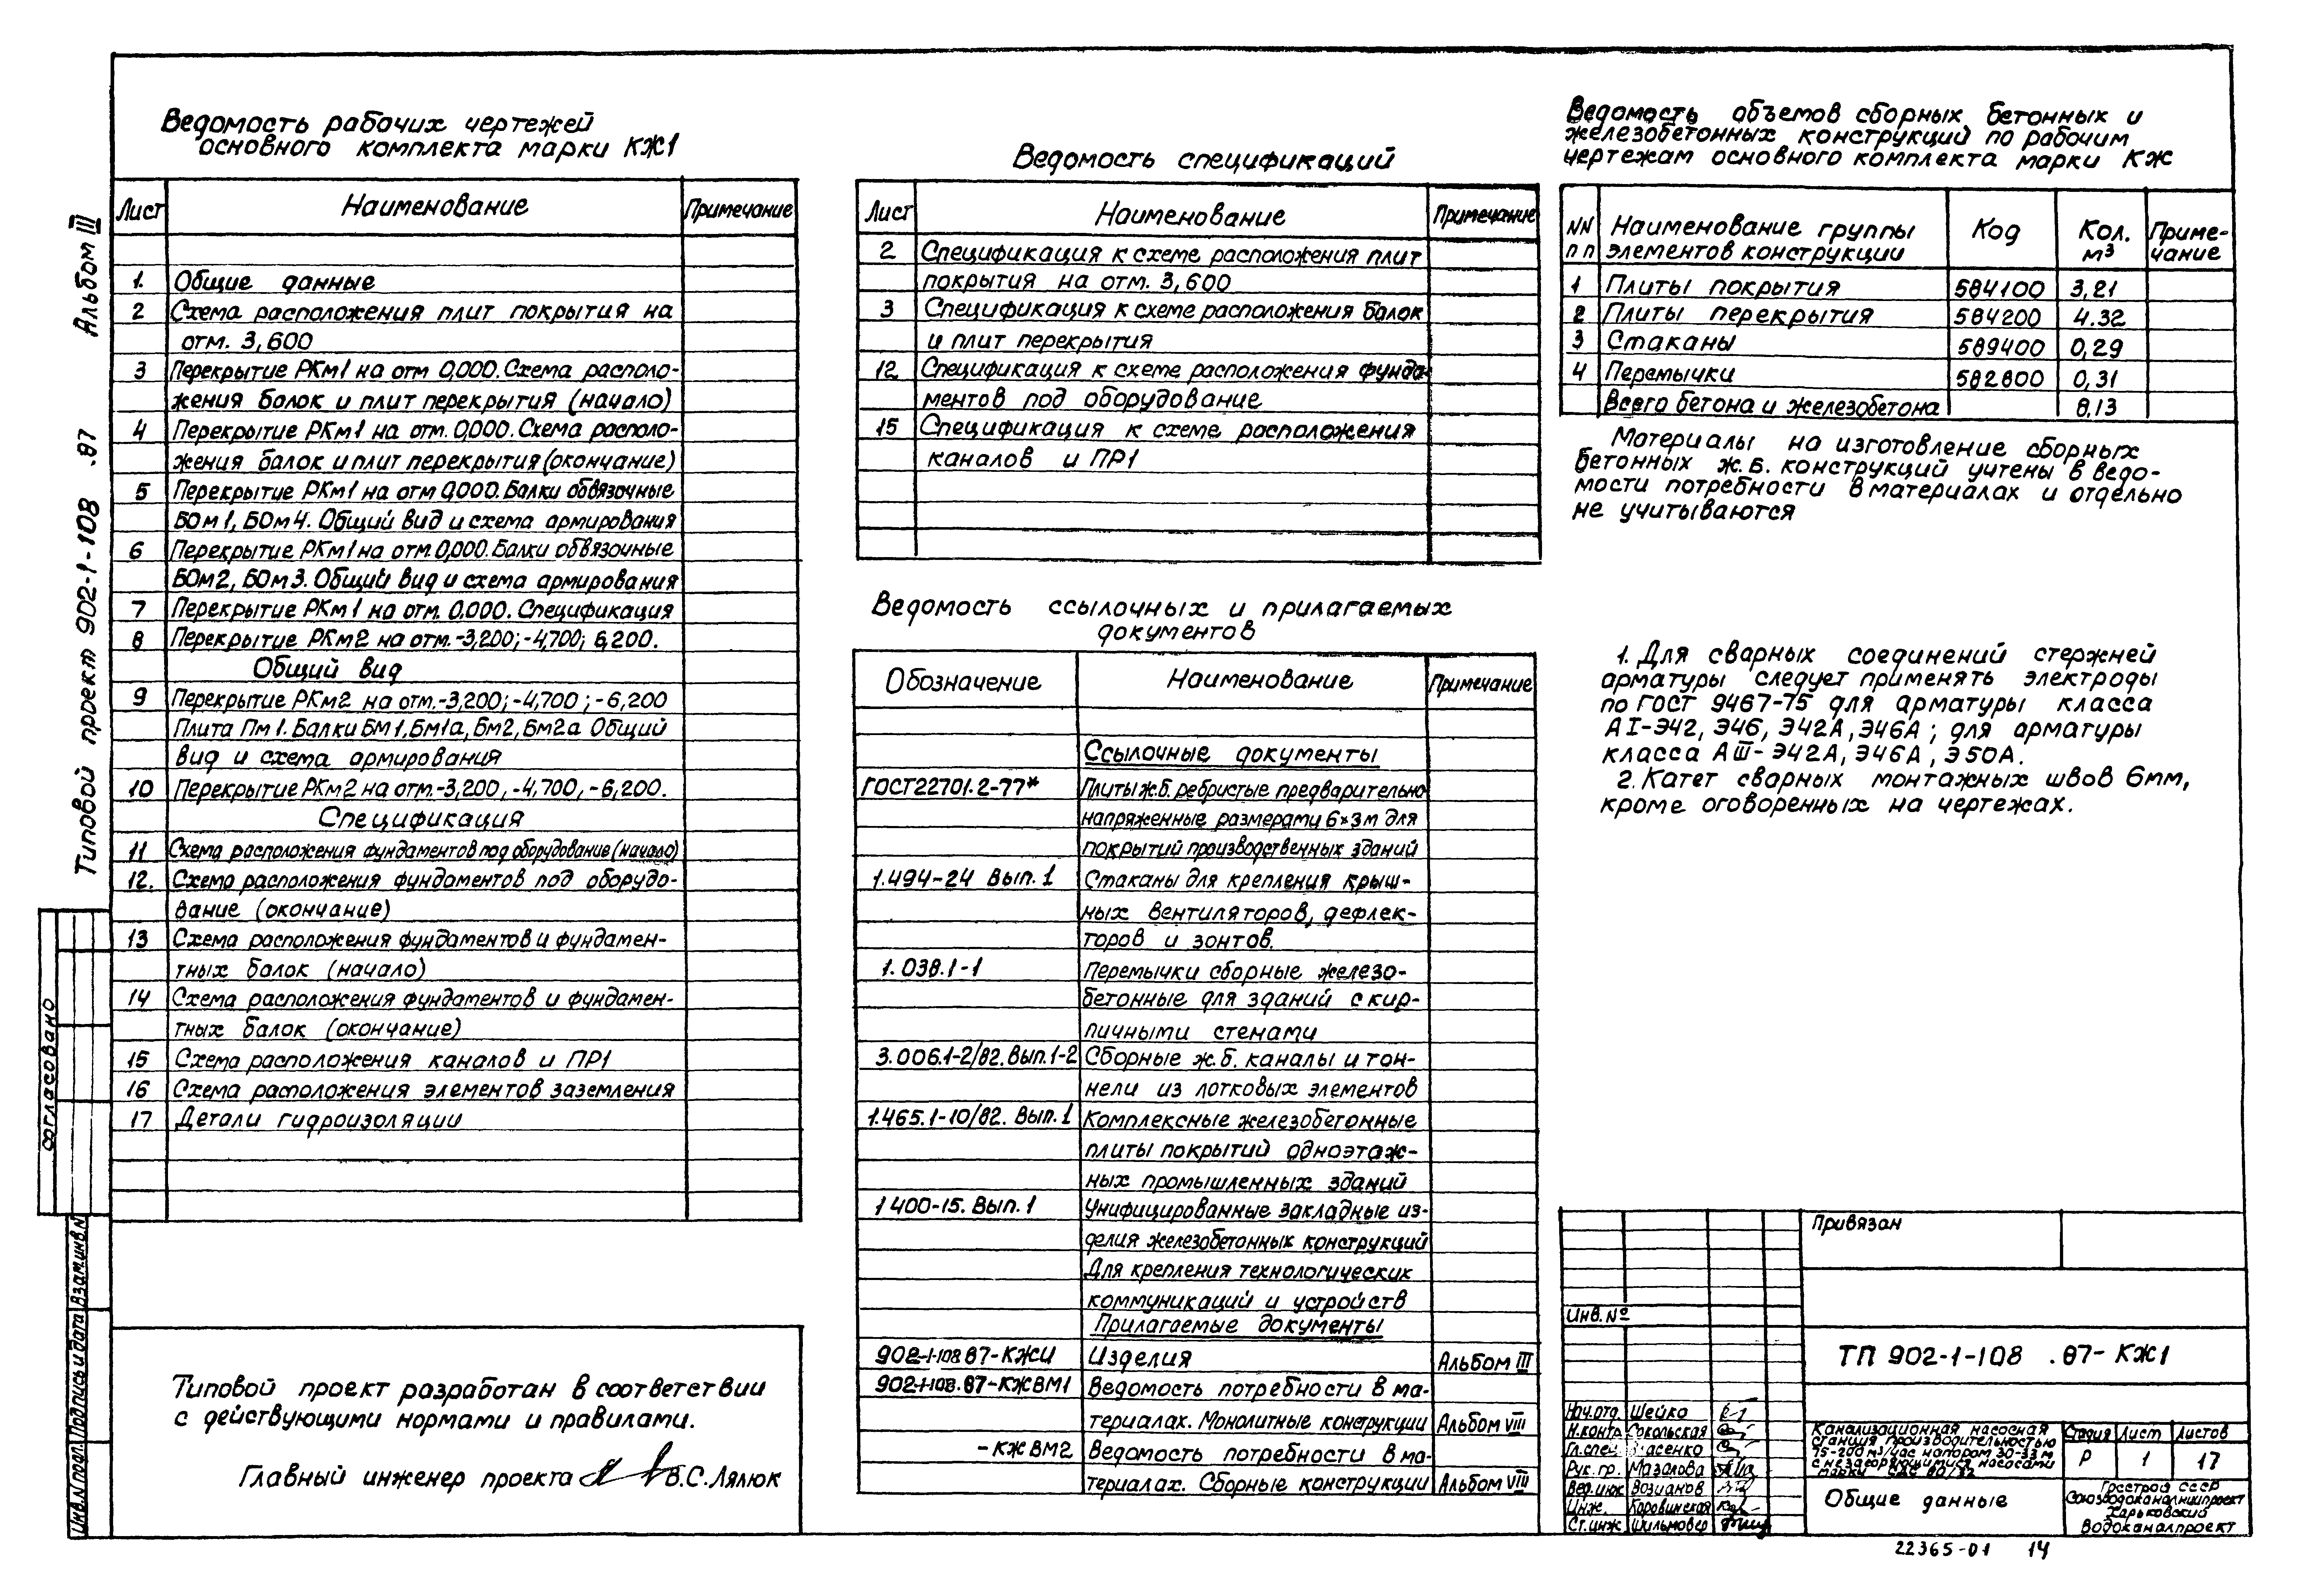 Ведомость рабочих чертежей
основного комплекта марки КЖ1
Лист Наименование Примечание
1. Общие данные
2 Схема расположения плит покрытия на
отм. 3,600
3 Перекрытие РКм1 на отм 0,000. Схема располо-
жения балок и плит перекрытия (начало)
4 Перекрытие РКм1 на отм. 0,000. Схема располо-
жения балок и плит перекрытия (окончание)
5 Перекрытие РКм1 на отм 0,000. Балки обвязочные
БОм1, БОм4. Общий вид и схема армирования
6 Перекрытие РКм1 на отм. 0,000. Балки обвязочные
БОм2, БОм3. Общий вид и схема армирования
7 Перекрытие РКм1 на отм. 0.000. Спецификация
8 Перекрытие РКм2 на отм. -3,200; -4,700; 6,200.
Общий вид
9 Перекрытие РКм2 на отм. -3,200; -4,700; -6,200
Плита Пм1. Балки Бм1, Бм1а, Бм2, Бм2а Общий
вид и схема армирования
10 Перекрытие РКм2 на отм. -3,200, -4,700, -6,200.
Спецификация
11 Схема расположения фундаментов под оборудование (начало)
12. Схема расположения фундаментов под оборудо-
вание (окончание)
13 Схема расположения фундаментов и фундамен-
тных балок (начало)
14 Схема расположения фундаментов и фундамен-
тных балок (окончание)
15 Схема расположения каналов и ПР1
16 Схема расположения элементов заземления
17 Детали гидроизоляции
Типовой проект разработан в соответствии
с действующими нормами и правилами.
Главный инженер проекта В.С.Лялюк
Типовой проект 902-1-108 .87 Альбом III
согласовано
Инв.N подл. Подпись и дата Взам.инв.N
Ведомость спецификаций
Лист Наименование Примечание
2 Спецификация к схеме расположения плит
покрытия на отм. 3,600
3 Спецификация к схеме расположения балок
и плит перекрытия
12 Спецификация к схеме расположения фунда-
ментов под оборудование
15 Спецификация к схеме расположения
каналов и ПР1
Ведомость ссылочных и прилагаемых
документов
Обозначение Наименование Примечание
Ссылочные документы
ГОСТ22701.2-77* Плиты ж.б. ребристые предварительно
напряженные размерами 6×3м для
покрытий производственных зданий
1.494-24 Вып. 1 Стаканы для крепления крыш-
ных вентиляторов, дефлек-
торов и зонтов.
1.038.1-1 Перемычки сборные железо-
бетонные для зданий с кир-
пичными стенами
3.006.1-2/82. Вып.1-2 Сборные ж.б. каналы и тон-
нели из лотковых элементов
1.465.1-10/82. Вып. 1 Комплексные железобетонные
плиты покрытий одноэтаж-
ных промышленных зданий
1400-15. Вып. 1 Унифицированные закладные из-
делия железобетонных конструкций
Для крепления технологических
коммуникаций и устройств
Прилагаемые документы
902-1-108.87-КЖИ Изделия Альбом III
902-1-108.87-КЖВМ1 Ведомость потребности в ма-
териалах. Монолитные конструкции Альбом VIII
-КЖВМ2 Ведомость потребности в ма-
териалах. Сборные конструкции Альбом VIII
Ведомость объемов сборных бетонных и
железобетонных конструкций по рабочим
чертежам основного комплекта марки КЖ
NN пп Наименование группы элементов конструкции Код Кол. м³ Приме-чание
1 Плиты покрытия 584100 3,21
2 Плиты перекрытия 584200 4.32
3 Стаканы 589400 0,29
4 Перемычки 582800 0,31
Всего бетона и железобетона 8,13
Материалы на изготовление сборных
бетонных ж.б. конструкций учтены в ведо-
мости потребности в материалах и отдельно
не учитываются
1. Для сварных соединений стержней
арматуры следует применять электроды
по ГОСТ 9467-75 для арматуры класса
АI-Э42, Э46, Э42А, Э46А; для арматуры
класса АIII-Э42А, Э46А, Э50А.
2. Катет сварных монтажных швов 6мм,
кроме оговоренных на чертежах.
Привязан
Инв.№
ТП 902-1-108 .87-КЖ1
Нач.отд. Шейко
Н.контр. Сокольская
Гл.спец. Власенко
Рук. гр. Мазалова
Вед.инж Возианов
Инж. Боровинская
Ст.инж Шильмовер
Канализационная насосная
станция производительностью
75-200 м³/час напором 30-33 м
с незасоряющимися насосами
марки СДС 80/32
Стадия Лист Листов
Р 1 17
Общие данные
Госстрой СССР
Союзводоканалниипроект
Харьковский
Водоканалпроект
22365-01 14